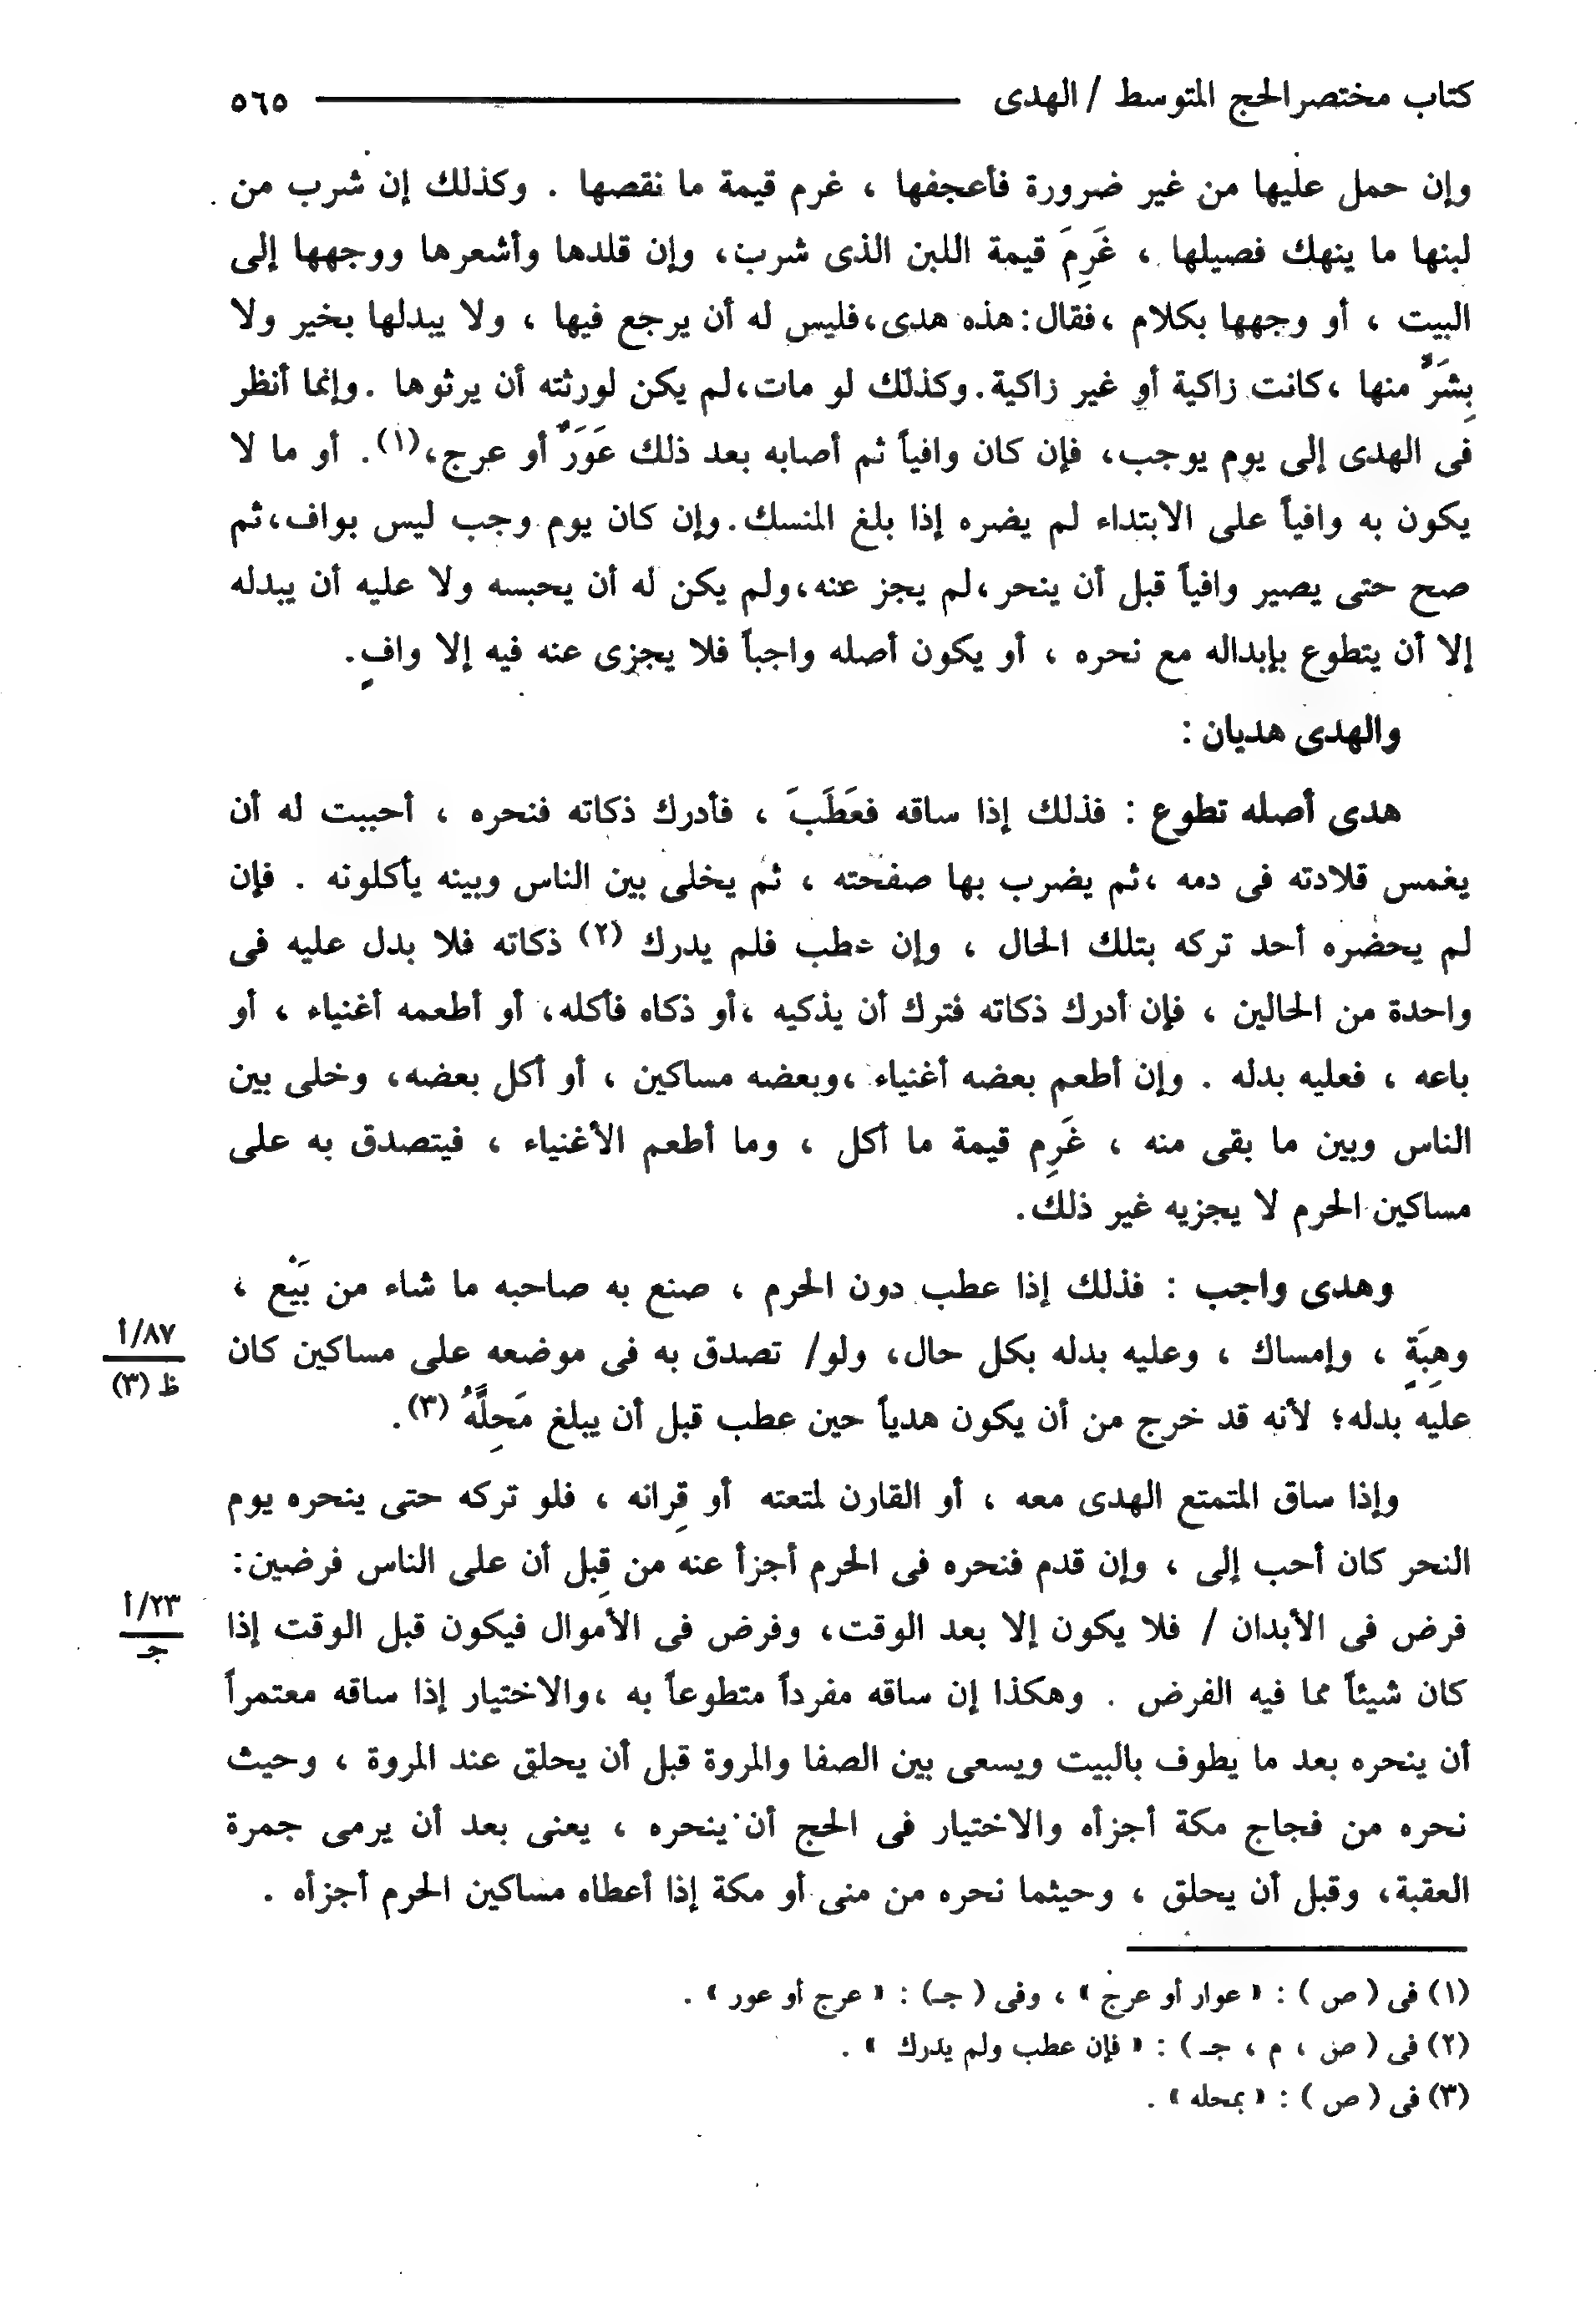 كتاب مختصر الحج المتوسط / الهدى ٥٦٥
وإن حمل عليها من غير ضرورة فأعجفها ، غرم قيمة ما نقصها . وكذلك إن شرب من
لبنها ما ينهك فصيلها ، غَرِمَ قيمة اللبن الذى شرب، وإن قلدها وأشعرها ووجهها إلى
البيت ، أو وجهها بكلام ،فقال:هذه هدى،فليس له أن يرجع فيها ، ولا يبدلها بخير ولا
بِشَرٌ منها ،كانت زاكية أو غير زاكية.وكذلك لو مات،لم يكن لورثته أن يرثوها .وإنما أنظر
فى الهدى إلى يوم يوجب، فإن كان وافياً ثم أصابه بعد ذلك عَوَرٌ أو عرج،(١). أو ما لا
يكون به وافياً على الابتداء لم يضره إذا بلغ المنسك.وإن كان يوم وجب ليس بواف،ثم
صح حتى يصير وافياً قبل أن ينحر،لم يجز عنه،ولم يكن له أن يحبسه ولا عليه أن يبدله
إلا أن يتطوع بإبداله مع نحره ، أو يكون أصله واجباً فلا يجزى عنه فيه إلا وافٍ.
والهدى هديان :
هدى أصله تطوع : فذلك إذا ساقه فعَطَبَ ، فأدرك ذكاته فنحره ، أحببت له أن
يغمس قلادته فى دمه ،ثم يضرب بها صفحته ، ثم يخلى بين الناس وبينه يأكلونه . فإن
لم يحضره أحد تركه بتلك الحال ، وإن عطب فلم يدرك (٢) ذكاته فلا بدل عليه فى
واحدة من الحالين ، فإن أدرك ذكاته فترك أن يذكيه ،أو ذكاه فأكله، أو أطعمه أغنياء ، أو
باعه ، فعليه بدله . وإن أطعم بعضه أغنياء ،وبعضه مساكين ، أو أكل بعضه، وخلى بين
الناس وبين ما بقى منه ، غَرِم قيمة ما أكل ، وما أطعم الأغنياء ، فيتصدق به على
مساكين الحرم لا يجزيه غير ذلك.
وهدى واجب : فذلك إذا عطب دون الحرم ، صنع به صاحبه ما شاء من بَيْع ،
وهِبَةٍ ، وإمساك ، وعليه بدله بكل حال، ولو/ تصدق به فى موضعه على مساكين كان
٨٧/أ
ظ (٣)
عليه بدله؛ لأنه قد خرج من أن يكون هدياً حين عطب قبل أن يبلغ مَحِلَّهُ (٣).
وإذا ساق المتمتع الهدى معه ، أو القارن لمتعته أو قِرانه ، فلو تركه حتى ينحره يوم
النحر كان أحب إلى ، وإن قدم فنحره فى الحرم أجزأ عنه من قِبل أن على الناس فرضين:
فرض فى الأبدان / فلا يكون إلا بعد الوقت، وفرض فى الأموال فيكون قبل الوقت إذا
٢٣/أ
جـ
كان شيئاً مما فيه الفرض . وهكذا إن ساقه مفرداً متطوعاً به ،والاختيار إذا ساقه معتمراً
أن ينحره بعد ما يطوف بالبيت ويسعى بين الصفا والمروة قبل أن يحلق عند المروة ، وحيث
نحره من فجاج مكة أجزأه والاختيار فى الحج أن ينحره ، يعنى بعد أن يرمى جمرة
العقبة، وقبل أن يحلق ، وحيثما نحره من منى أو مكة إذا أعطاه مساكين الحرم أجزأه .
(١) فى ( ص ) : « عوار أو عرج » ، وفى ( جـ) : « عرج أو عور » .
(٢) فى ( ص ، م ، جـ ) : « فإن عطب ولم يدرك » .
(٣) فى ( ص ) : « بمحله » .